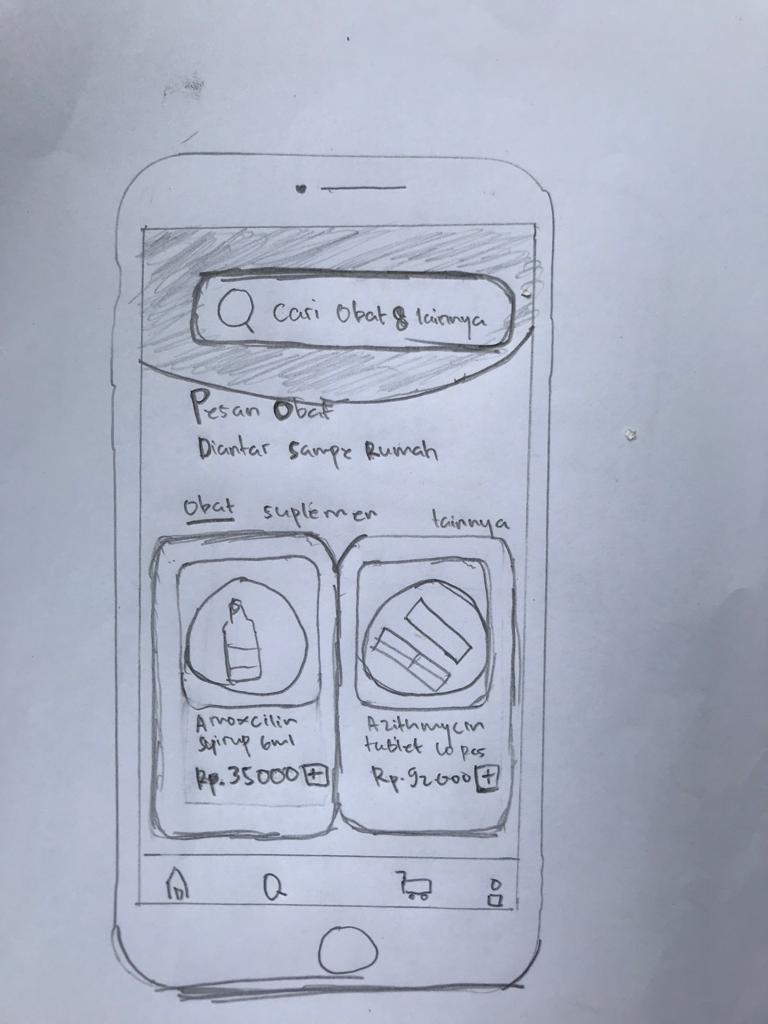 Cari Obat & lainnya
Pesan Obat
Diantar Sampe Rumah
Obat suplemen lainnya
Amoxcilin
syirup 6ml
Rp. 35000 +
Azithmycin
tablet 10 pcs
Rp. 92000 +